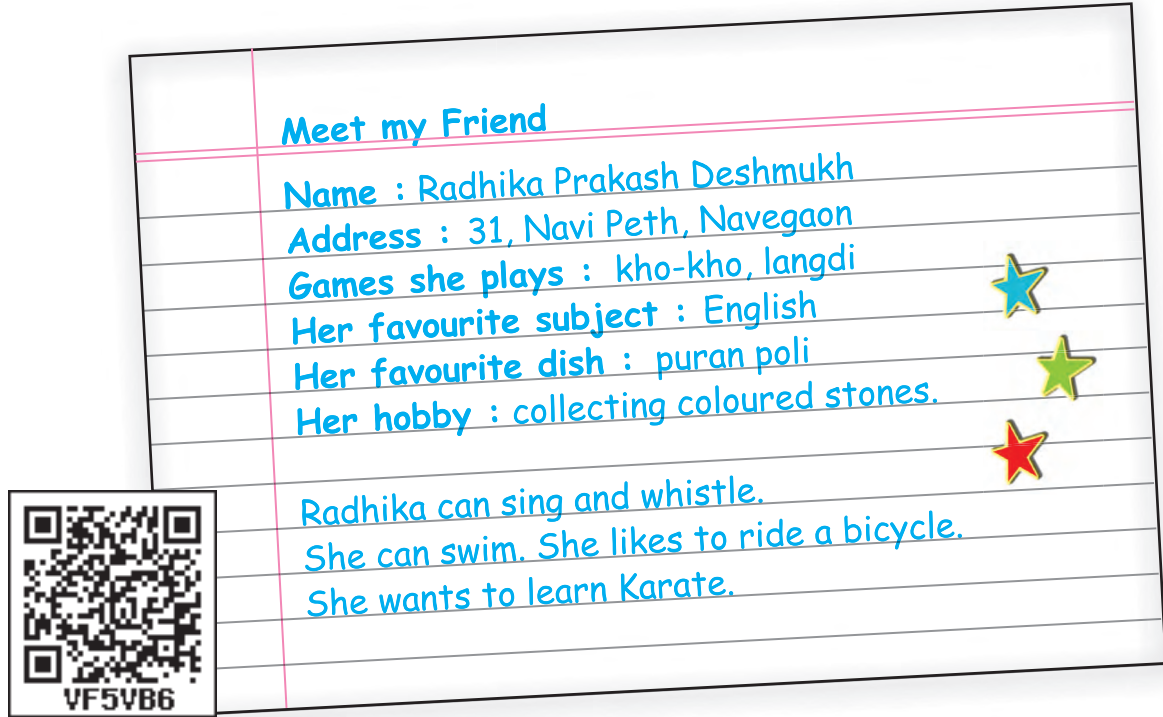 Meet my Friend
Name : Radhika Prakash Deshmukh
Address : 31, Navi Peth, Navegaon
Games she plays : kho-kho, langdi
Her favourite subject : English
Her favourite dish : puran poli
Her hobby : collecting coloured stones.
Radhika can sing and whistle.
She can swim. She likes to ride a bicycle.
She wants to learn Karate.
VF5VB6